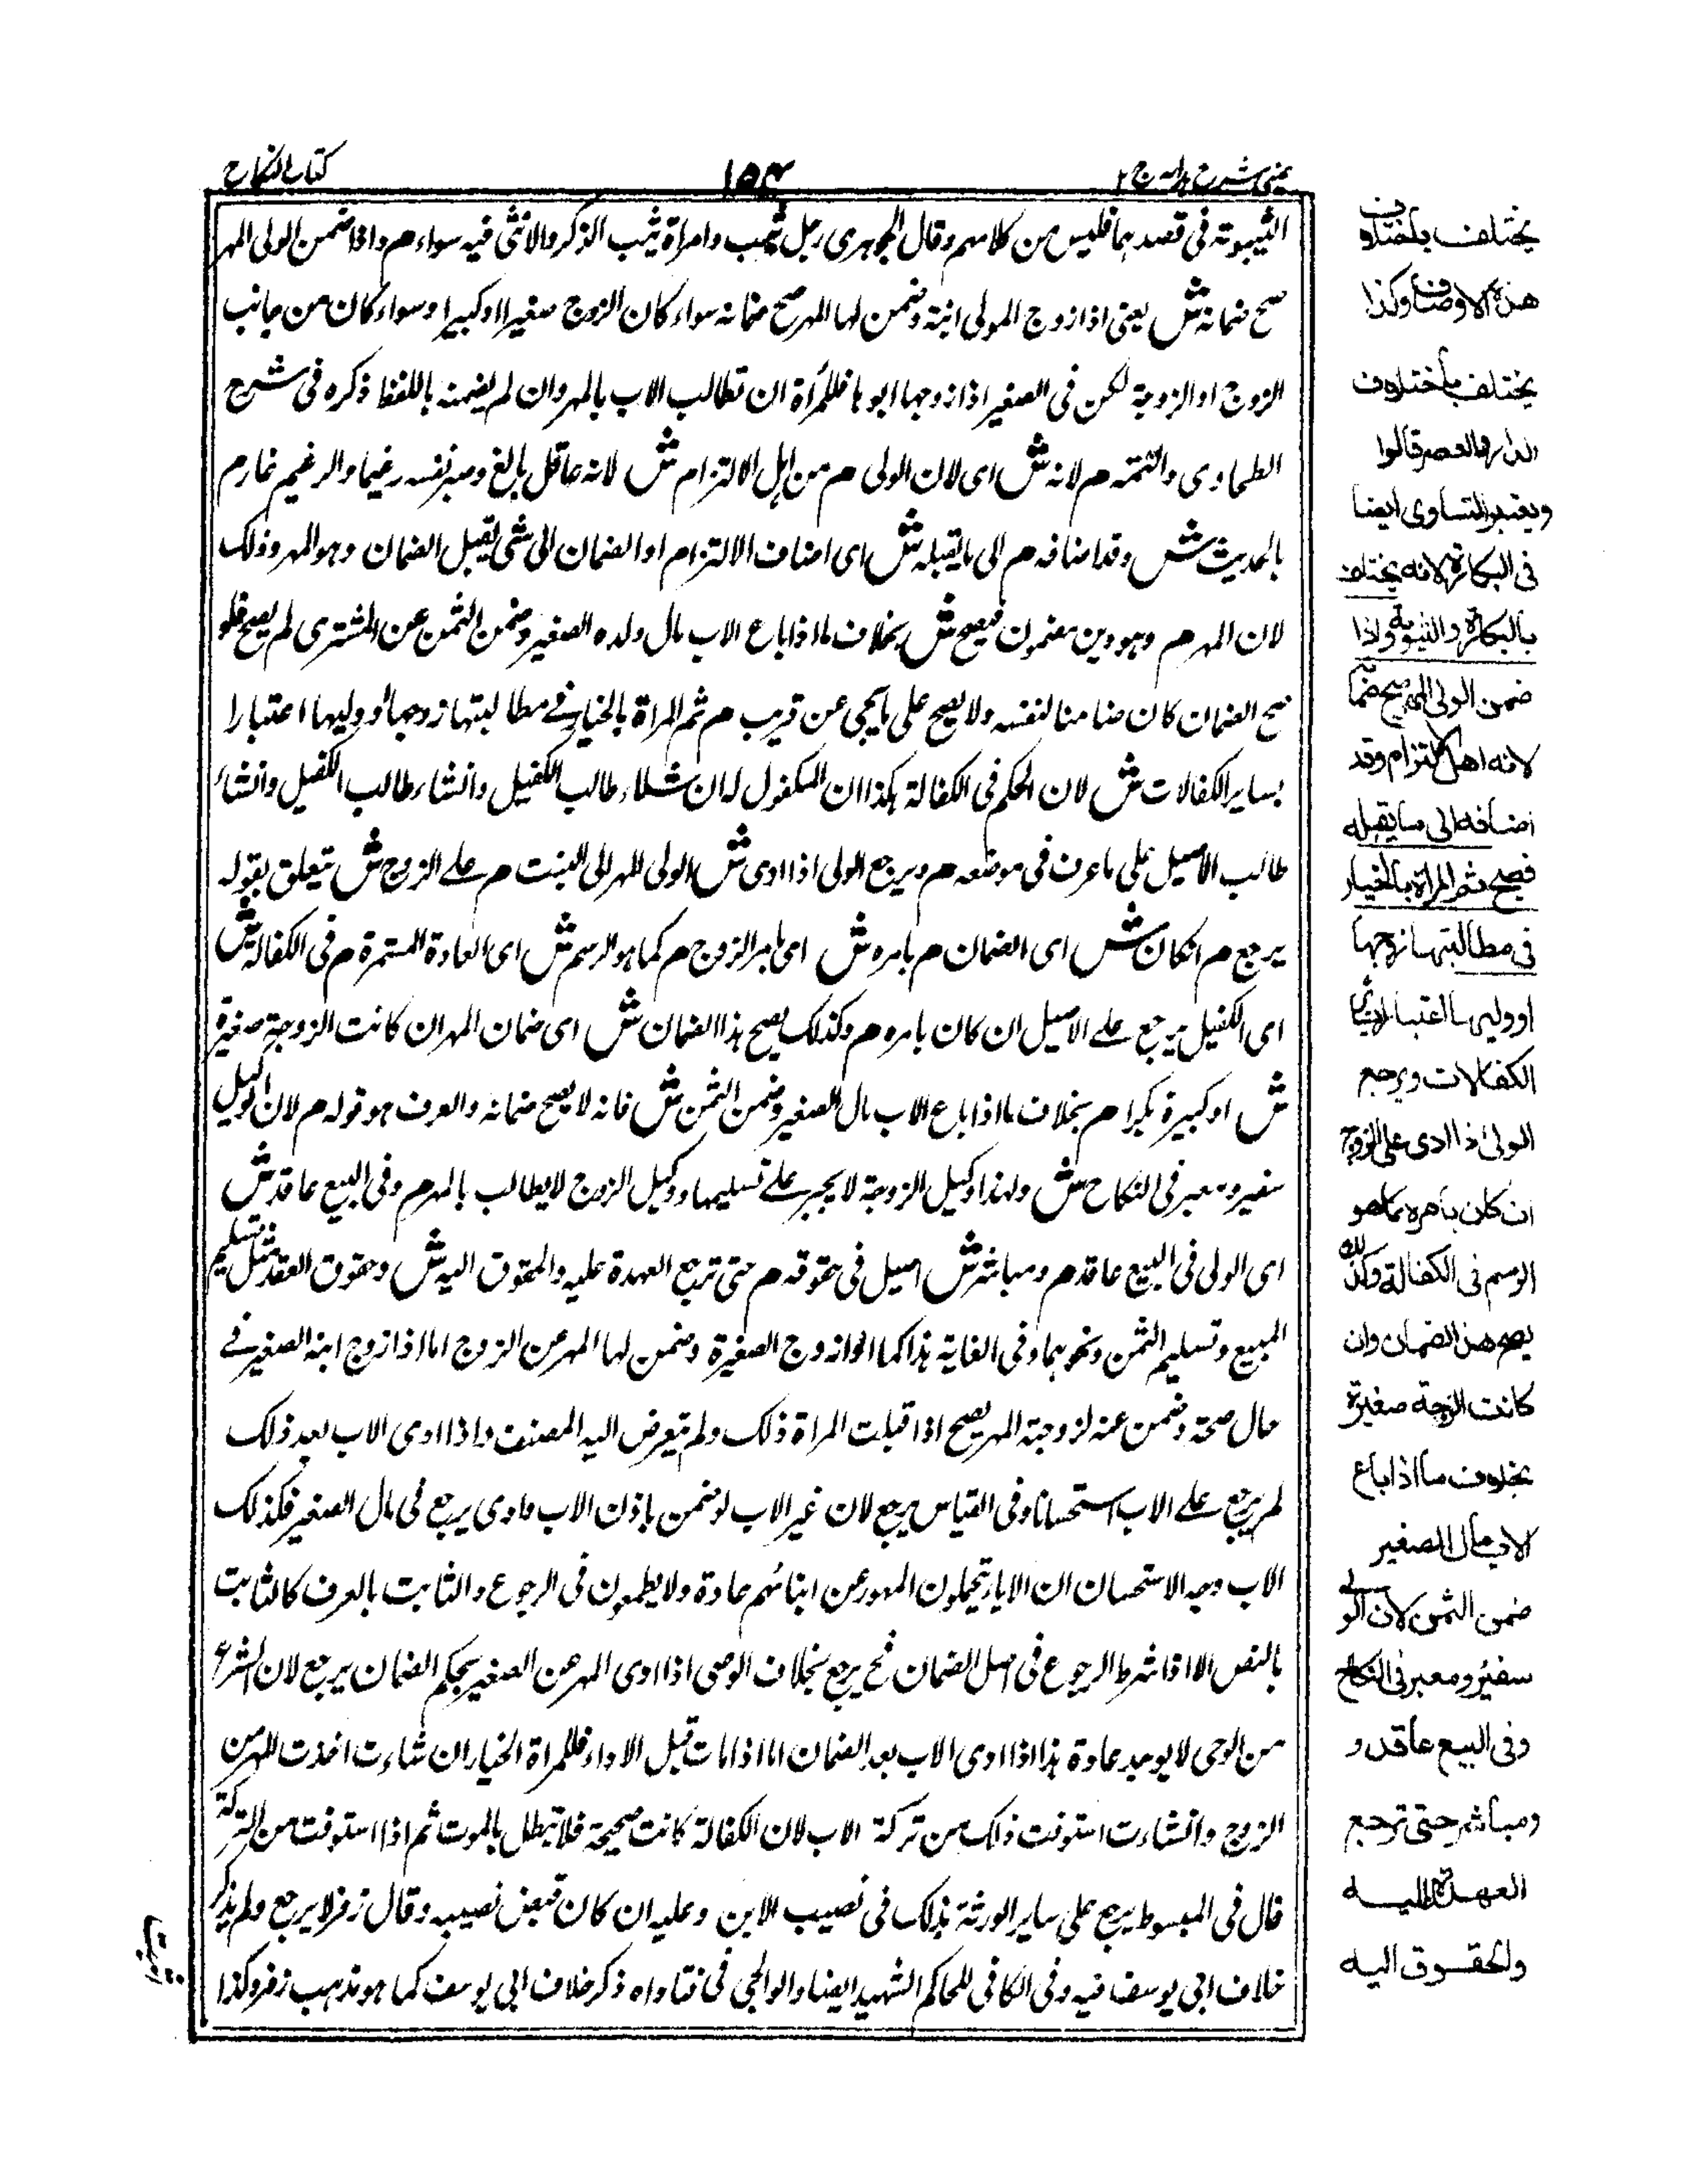 عینی شرح ہدایہ ج ۲
۱۵۴
کتاب النکاح
الثیبوبته فی قصدہما فلیس من کلامہم وقال الجوہری رجل ثیب وامراة ثیب الذکر والانثی فیه سواء م واذا ضمن الولی المہر
صح ضمانہ ش یعنی اذا زوج المولی ابنتہ وضمن لہا المہر صح ضمانہ سواء کان الزوج صغیرا او کبیرا وسواء کان من جانب
الزوج او الزوجة لکن فی الصغیر اذا زوجہا ابوہا فللمرأة ان تطالب الاب بالمہر وان لم یضمنہ باللفظ ذکرہ فی شرح
الطحاوی والتتمہ م لانہ ش ای لان الولی م من اہل الالتزام ش لانہ عاقل بالغ وصیر نفسہ زعیما والزعیم غارم
بالحدیث ش وقد اضافہ م الی ما یقبلہ ش ای اضاف الالتزام او الضمان الی شی یقبل الضمان وہو المہر وذلک
لان المہر م وہو دین مضمون فیصح ش بخلاف ما اذا باع الاب مال ولدہ الصغیر وضمن الثمن عن المشتری لم یصح فلو
صح الضمان کان ضامنا لنفسہ ولا یصح علی ما یجی عن قریب م ثم المراة بالخیار فے مطالبتہا زوجہا او ولیہا اعتبارا
بسایر الکفالات ش لان الحکم فی الکفالة ہکذا ان المکفول لہ ان شاء طالب الکفیل وانشاء طالب الکفیل وانشاء
طالب الاصیل علی ما عرف فی موضعہ م ویرجع الولی اذا ادی ش الولی المہر الی البنت م علے الزوج ش یتعلق بقولہ
یرجع م انکان ش ای الضمان م بامرہ ش ای بامر الزوج م کما ہو الرسم ش ای العادة المستمرة م فی الکفالة ش
ای الکفیل یرجع علے الاصیل ان کان بامرہ م وکذلک یصح ہذا الضمان ش ای ضمان المہر ان کانت الزوجة صغیرة
ش او کبیرة بکرا م بخلاف ما اذا باع الاب مال الصغیر وضمن الثمن ش فانہ لا یصح ضمانہ والعرف ہو قولہ م لان الوکیل
سفیر ومعبر فی النکاح ش ولہذا وکیل الزوجة لا یجبر علے تسلیمہا ووکیل الزوج لا یطالب بالمہر م وفی البیع عاقد ش
ای الولی فی البیع عاقد م ومباشر ش اصیل فی حقوقہ م حتی ترجع العہدة علیہ والحقوق الیہ ش وحقوق العقد مثل تسلیم
المبیع وتسلیم الثمن ونحوہما وفی الغایة ہذا کما لو انہ زوج الصغیرة وضمن لہا المہر عن الزوج اما اذا زوج ابنہ الصغیر فے
حال صحتہ وضمن عنہ لزوجتہ المہر یصح اذا قبلت المراة ذلک ولم یتعرض الیہ المصنف واذا ادی الاب بعد ذلک
لم یرجع علے الاب استحسانا وفی القیاس یرجع لان غیر الاب لو ضمن باذن الاب وادی یرجع فی مال الصغیر فکذلک
الاب وجہ الاستحسان ان الاباء یتحملون المہور عن ابنائہم عادة ولا یطمعون فی الرجوع والثابت بالعرف کالثابت
بالنص الا اذا شرط الرجوع فی اصل الضمان فح یرجع بخلاف الوصی اذا ادی المہر عن الصغیر بحکم الضمان یرجع لان التبرع
من الوصی لا یوجد عادة ہذا اذا ادی الاب بعد الضمان اما اذا مات قبل الاداء فللمراة الخیار ان شاءت اخذت المہر من
الزوج وانشاءت استوفت ذلک من ترکة الاب لان الکفالة کانت صحیحة فلا تبطل بالموت ثم اذا استوفت من الترکة
قال فی المبسوط یرجع علی سایر الورثة بذلک فی نصیب الابن وعلیہ ان کان قبض نصیبہ وقال زفر لا یرجع ولم یذکر
خلاف ابی یوسف فیہ وفی الکافی للحاکم الشہید ایضا والوالجی فی فتاواہ ذکر خلاف ابی یوسف کما ہو مذہب زفر وکذا
یختلف باختلاف
هذہ الاوصاف وکذا
یختلف باختلاف
الدار والعصر قالوا
ویعتبر التساوی ایضا
فی البکارة لانه یختلف
بالبکارة والثیوبة واذا
ضمن الولی المهر صح ضمانه
لانه اهل الالتزام وقد
اضافه الی ما یقبله
فیصح ثم المراة بالخیار
فی مطالبتها زوجها
او ولیها اعتبارا بسائر
الکفالات ویرجع
الولی اذا ادی علی الزوج
ان کان بامره کما هو
الرسم فی الکفالة وکذلك
یصح هذا الضمان وان
کانت الزوجة صغیرة
بخلاف ما اذا باع
الاب مال الصغیر
ضمن الثمن لان الولی
سفیر ومعبر فی النکاح
وفی البیع عاقد و
ومباشر حتی ترجع
العهدة علیه
والحقوق الیه